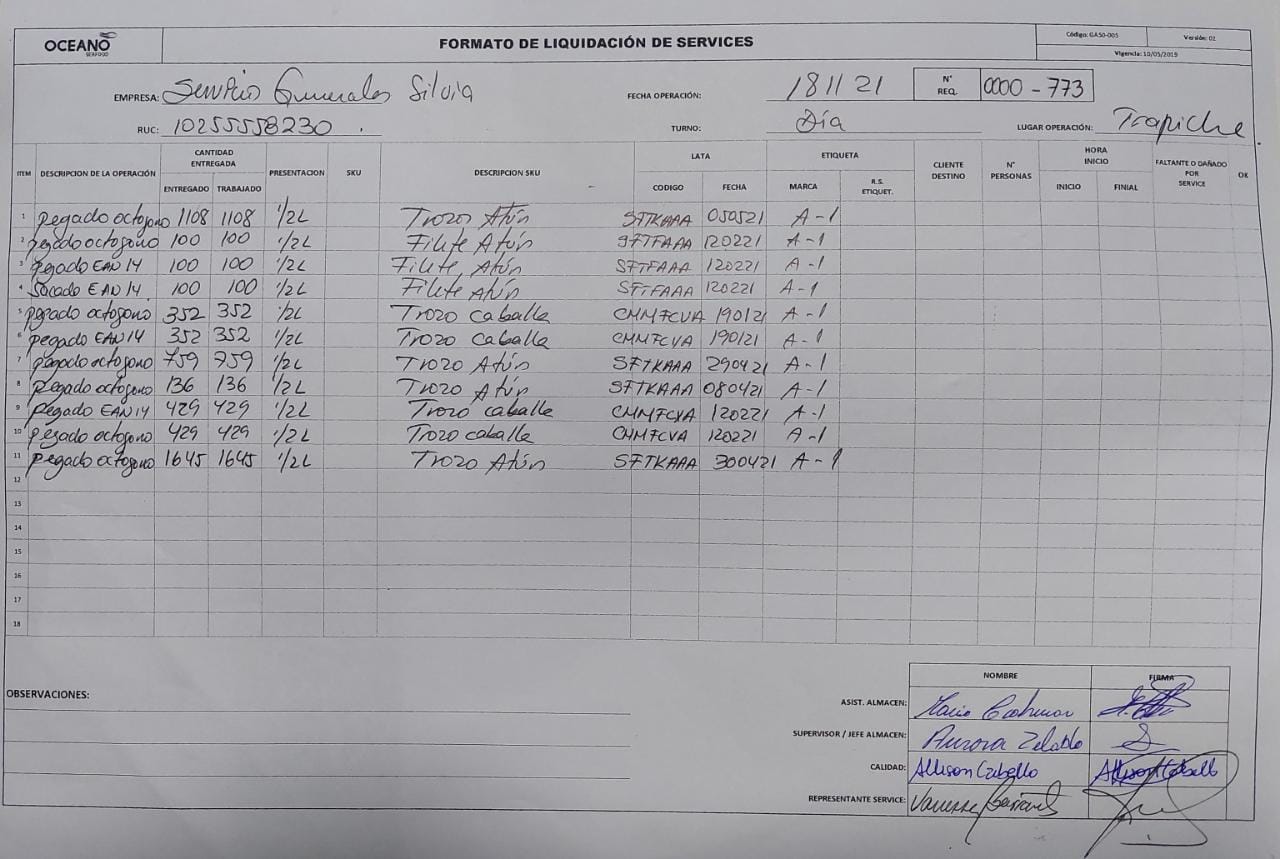 OCEANO
SEAFOOD
FORMATO DE LIQUIDACIÓN DE SERVICES
Código: GA50-005 Versión: 02
Vigencia: 10/05/2019
EMPRESA: Servicios Generales Silvia FECHA OPERACIÓN: 181121 N° REQ. 0000 - 773
RUC: 10255558230 TURNO: Día LUGAR OPERACIÓN: Trapiche
ITEM DESCRIPCION DE LA OPERACIÓN CANTIDAD ENTREGADA ENTREGADO TRABAJADO PRESENTACION SKU DESCRIPCION SKU LATA CODIGO FECHA ETIQUETA MARCA R.S. ETIQUET. CLIENTE DESTINO N° PERSONAS HORA INICIO INICIO FINIAL FALTANTE O DAÑADO POR SERVICE OK
1 pegado octogono 1108 1108 1/2L Trozo Atún SFTKAAA 050521 A-1
2 pegado octogono 100 100 1/2L Filete Atún SFTFAAA 120221 A-1
3 pegado EAN 14 100 100 1/2L Filete Atún SFTFAAA 120221 A-1
4 Sacado EAN 14 100 100 1/2L Filete Atún SFTFAAA 120221 A-1
5 pegado octogono 352 352 1/2L Trozo caballa CMMFCVA 190121 A-1
6 pegado EAN 14 352 352 1/2L Trozo caballa CMMFCVA 190121 A-1
7 pegado octogono 759 759 1/2L Trozo Atún SFTKAAA 290421 A-1
8 pegado octogono 136 136 1/2L Trozo Atún SFTKAAA 080421 A-1
9 pegado EAN 14 429 429 1/2L Trozo caballa CMMFCVA 120221 A-1
10 pegado octogono 429 429 1/2L Trozo caballa CMMFCVA 120221 A-1
11 pegado octogono 1645 1645 1/2L Trozo Atún SFTKAAA 300421 A-1
12
13
14
15
16
17
18
OBSERVACIONES:
NOMBRE FIRMA
ASIST. ALMACEN:
SUPERVISOR / JEFE ALMACEN: Aurora
CALIDAD: Allison Cabello Allison Cabello
REPRESENTANTE SERVICE: Vanessa